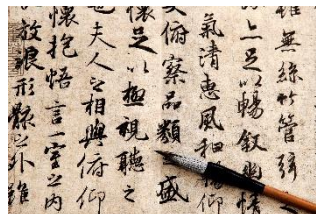 雖無絲竹管弦
亦足以暢叙幽情
氣清惠風和暢仰
俯察品類之盛
懷足以極視聽之
也夫人之相與俯仰
懷抱悟言一室之內
放浪形骸之外雖